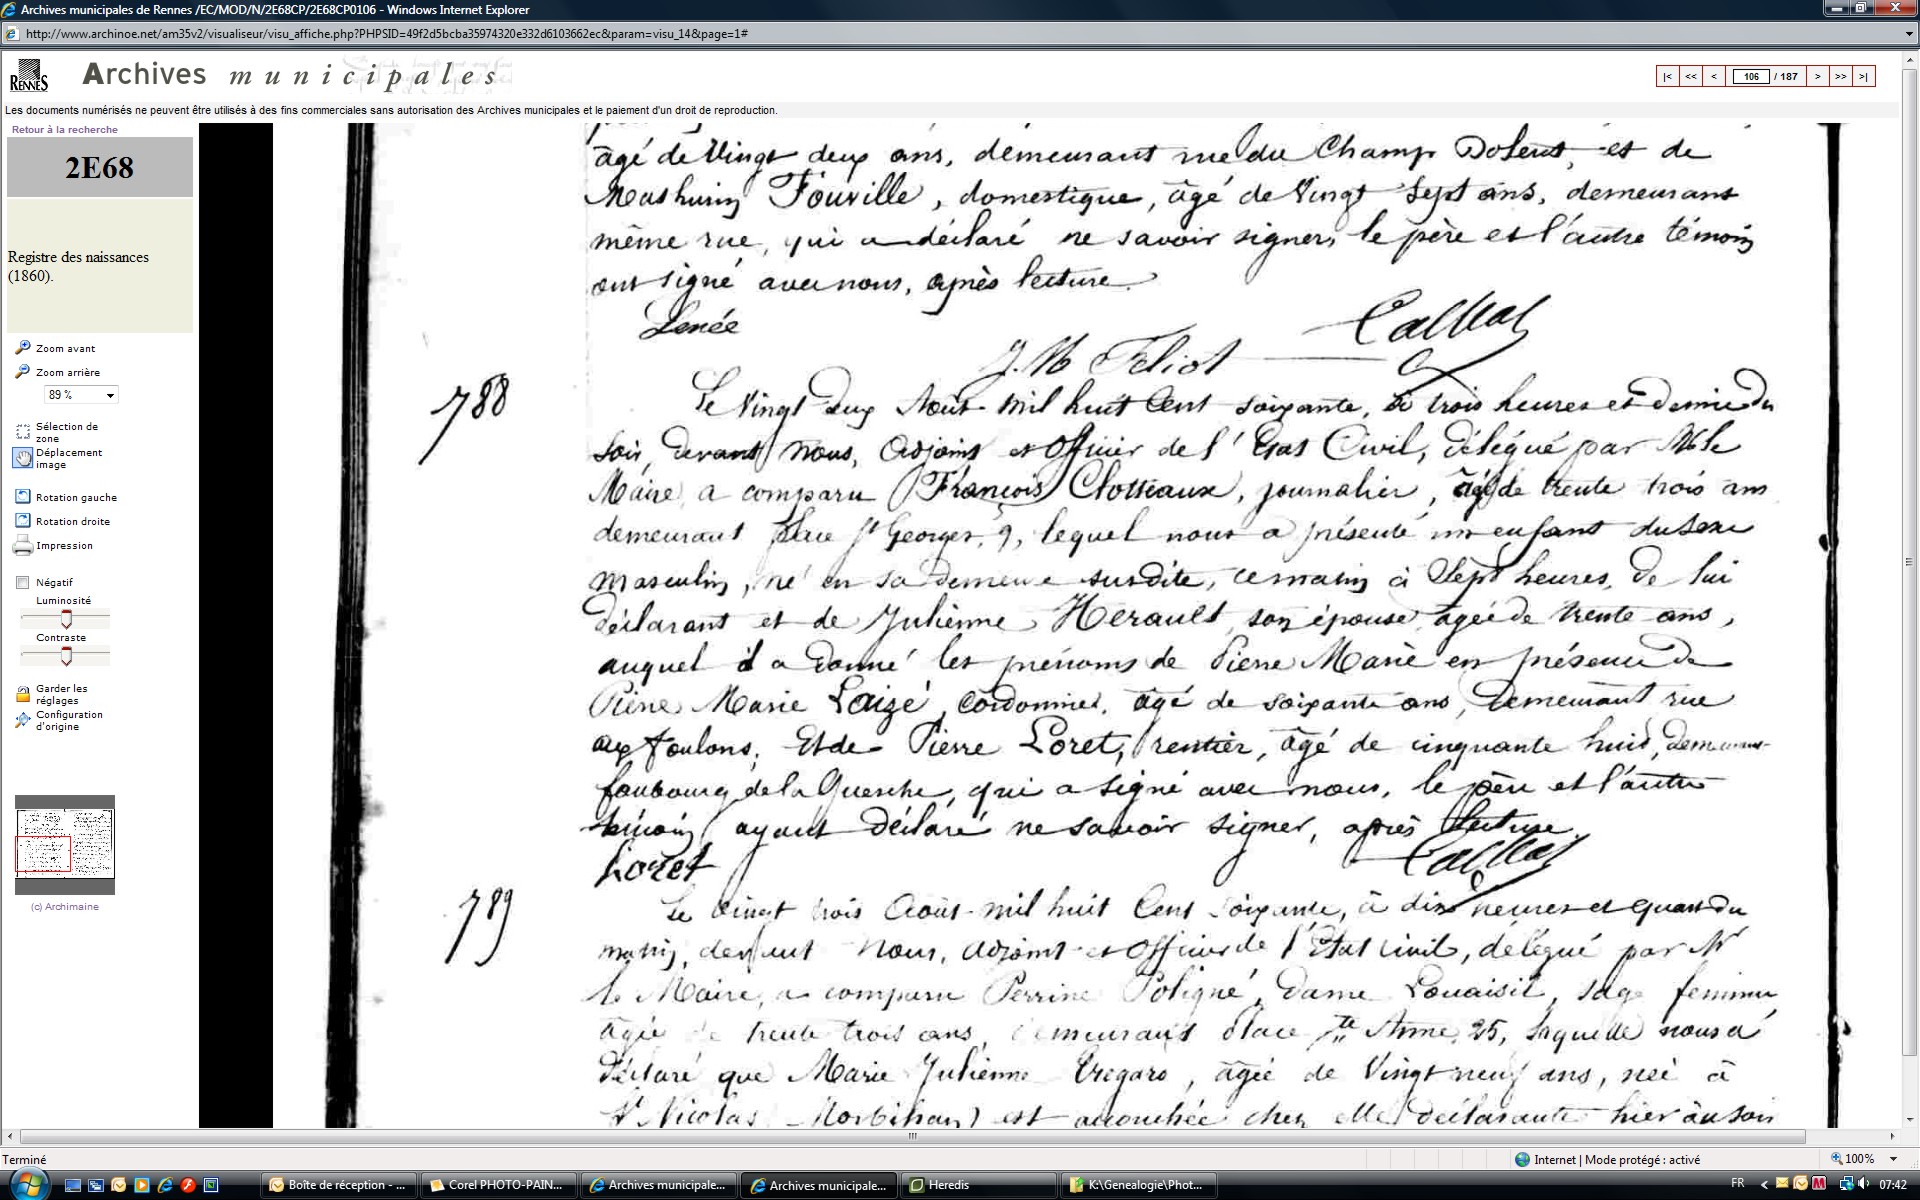 Archives municipales de Rennes /EC/MOD/N/2E68CP/2E68CP0106 - Windows Internet Explorer
http://www.archinoe.net/am35v2/visualiseur/visu_affiche.php?PHPSID=49f2d5bcba35974320e332d6103662ec&param=visu_14&page=1#
RENNES
Archives municipales
|< << < 106 / 187 > >> >|
Les documents numérisés ne peuvent être utilisés à des fins commerciales sans autorisation des Archives municipales et le paiement d'un droit de reproduction.
Retour à la recherche
2E68
Registre des naissances
(1860).
Zoom avant
Zoom arrière
89 %
Sélection de
zone
Déplacement
image
Rotation gauche
Rotation droite
Impression
Négatif
Luminosité
Contraste
Garder les
réglages
Configuration
d'origine
(c) Archimaine
âgé de Vingt deux ans, demeurant rue du Champ Dolent, et de
Mathurin Fouville, domestique, âgé de Vingt Sept ans, demeurant
même rue, qui a déclaré ne savoir signer, le père et l'autre témoin
ont signé avec nous, après lecture.
J. M. Feliot
788
Le Vingt deux Août mil huit Cent soixante, à trois heures et demie du
soir, devant Nous, Adjoint et Officier de l'Etat Civil, délégué par M. le
Maire, a comparu François Clotteaux, journalier, âgé de trente trois ans
demeurant place St Georges, 9, lequel nous a présenté un enfant du Sexe
masculin, né en sa demeure susdite, ce matin à Sept heures, de lui
déclarant et de Julienne Herault, son épouse, agée de trente ans,
auquel il a donné les prénoms de Pierre Marie en présence de
Pierre Marie Laizé, cordonnier, âgé de soixante ans, demeurant rue
aux foulons, Et de Pierre Loret, rentier, âgé de cinquante huit, demeurant
faubourg de la Guerche, qui a signé avec nous, le père et l'autre
témoin ayant déclaré ne savoir signer, après lecture.
Loret
789
Le vingt trois Août mil huit Cent soixante, à dix heures et quart du
matin, devant Nous, Adjoint et Officier de l'Etat Civil, délégué par Mr
le Maire, a comparu Perrine Poligné, Dame Louaisil, sage femme
âgée de trente trois ans, demeurant place Ste Anne, 25, laquelle nous a
déclaré que Marie Julienne Tregaro, âgée de Vingt neuf ans, née à
St Nicolas (Morbihan) est accouchée chez elle déclarante hier au soir
Terminé
Internet | Mode protégé : activé
100%
Boîte de réception - ...
Corel PHOTO-PAIN...
Archives municipale...
Archives municipale...
Heredis
K:\Genealogie\Phot...
FR
07:42